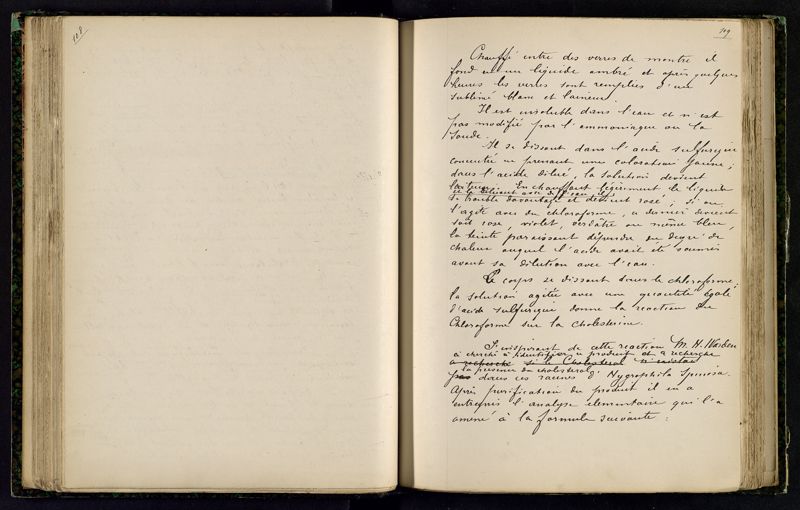 108
109
Chauffé entre des verres de montre il
fond en un liquide ambré et après quelques
heures les verres sont remplies d'un
sublimé blanc et laineux.
Il est insoluble dans l'eau et n'est
pas modifié par l'ammoniaque ou la
Soude.
Il se dissout dans l'acide sulfurique
concentré en prenant une coloration jaune;
dans l'acide dilué, la solution devient
laiteuse. En chauffant légèrement le liquide
et le diluant avec de l'eau il
se trouble davantage et devient rosé; si on
l'agite avec du chloroforme, ce dernier devient
soit rose, violet, verdâtre ou même bleu,
la teinte paraissant dépendre du degré de
chaleur auquel l'acide avait été soumis
avant sa dilution avec l'eau.
Ce corps se dissout dans le chloroforme;
la solution agitée avec une quantité égale
d'acide sulfurique donne la reaction du
Chloroforme sur la Cholesterine.
S'inspirant de cette reaction M. H. Warden
a cherché à identifier ce produit et a recherche
a recherché si le Cholesterol n'existait
la présence du cholesterol
pas dans les racines d'Hygrophila Spinosa.
Après purification du produit il en a
entrepris l'analyse elementaire qui l'a
amené à la formule suivante: